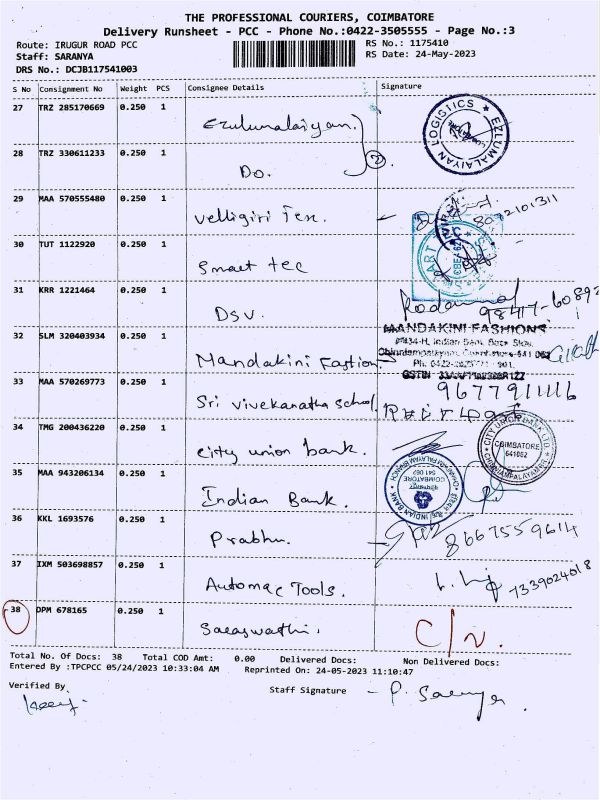 THE PROFESSIONAL COURIERS, COIMBATORE
Delivery Runsheet - PCC - Phone No.:0422-3505555 - Page No.:3
Route: IRUGUR ROAD PCC RS No.: 1175410
Staff: SARANYA RS Date: 24-May-2023
DRS No.: DCJB117541003
S No Consignment No Weight PCS Consignee Details Signature
27 TRZ 285170669 0.250 1 Ezulumalaiyan. EZLUMALAIYAN LOGISTICS
28 TRZ 330611233 0.250 1 Do. 2
29 MAA 570555480 0.250 1 Velligiri Tex.
30 TUT 1122920 0.250 1 Smart tec
31 KRR 1221464 0.250 1 DSV. 98417-60892
32 SLM 320403934 0.250 1 Mandakini Fastion. MANDAKINI FASHIONS
33 MAA 570269773 0.250 1 Sri vivekanatha school.
34 TMG 200436220 0.250 1 City union bank. CITY UNION BANK LTD. COIMBATORE 641062
35 MAA 943206134 0.250 1 Indian Bank. INDIAN BANK COIMBATORE
36 KKL 1693576 0.250 1 Prabhu. 8667559614
37 IXM 503698857 0.250 1 Automac Tools. 7339024618
38 DPM 678165 0.250 1 Saraswathi. C/N.
Total No. Of Docs: 38 Total COD Amt: 0.00 Delivered Docs: Non Delivered Docs:
Entered By :TPCPCC 05/24/2023 10:33:04 AM Reprinted On: 24-05-2023 11:10:47
Verified By Staff Signature - P. Saranya.